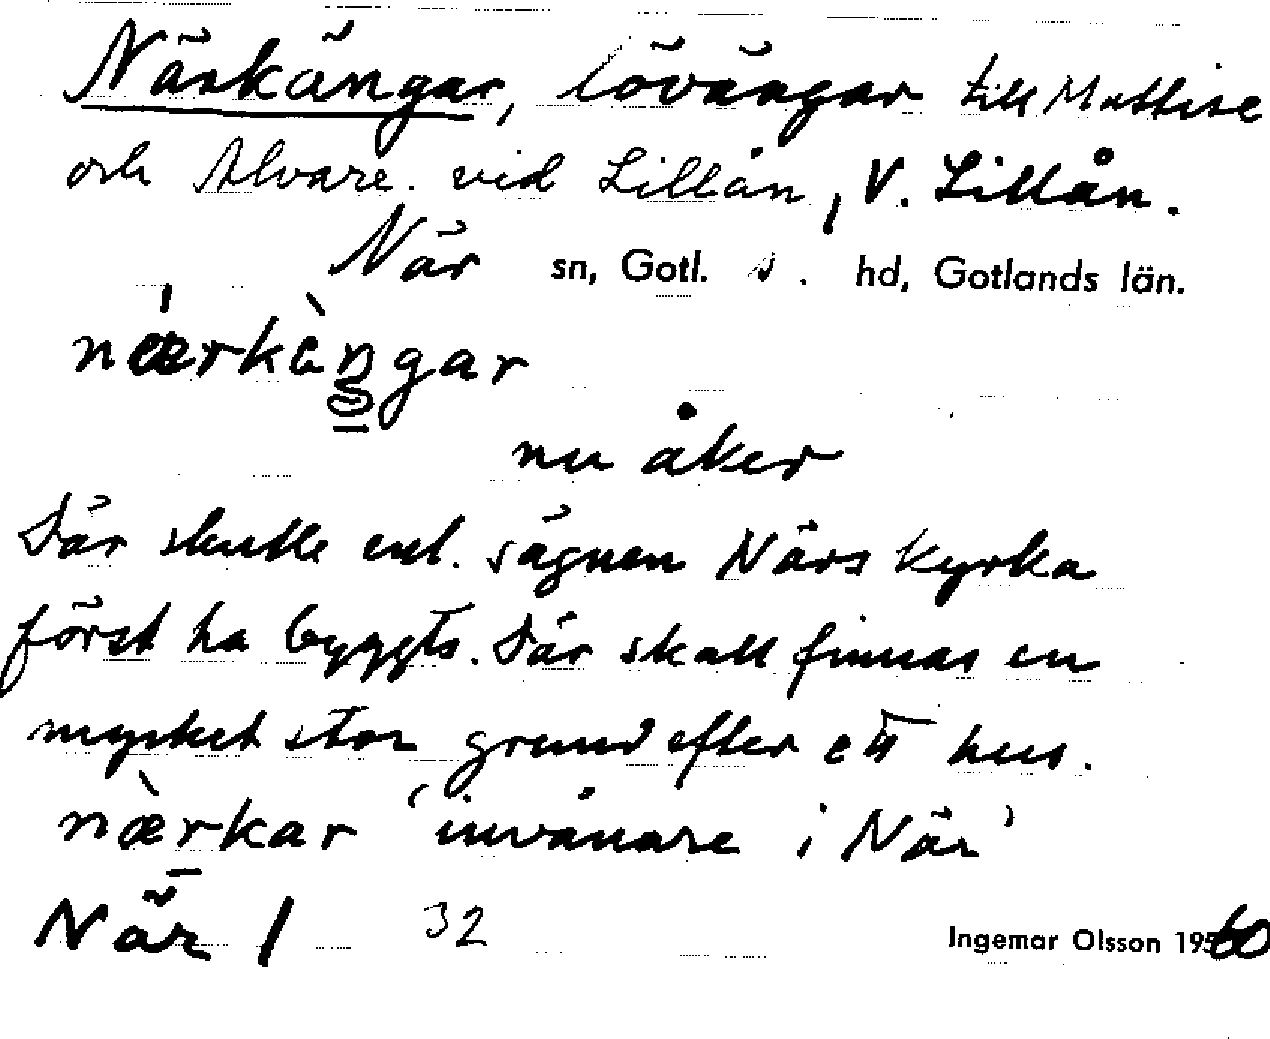 Närkängar, lövängar till Mattise
och Alvare. vid Lillån, V. Lillån.
När sn, Gotl. s. hd, Gotlands län.
nǽrkèŋgar
nu åker
Där skulle enl. sägnen Närs kyrka
först ha byggts. Där skall finnas en
mycket stor grund efter ett hus.
næ̀rkar 'invånare i När'
När 1 32 Ingemar Olsson 1960